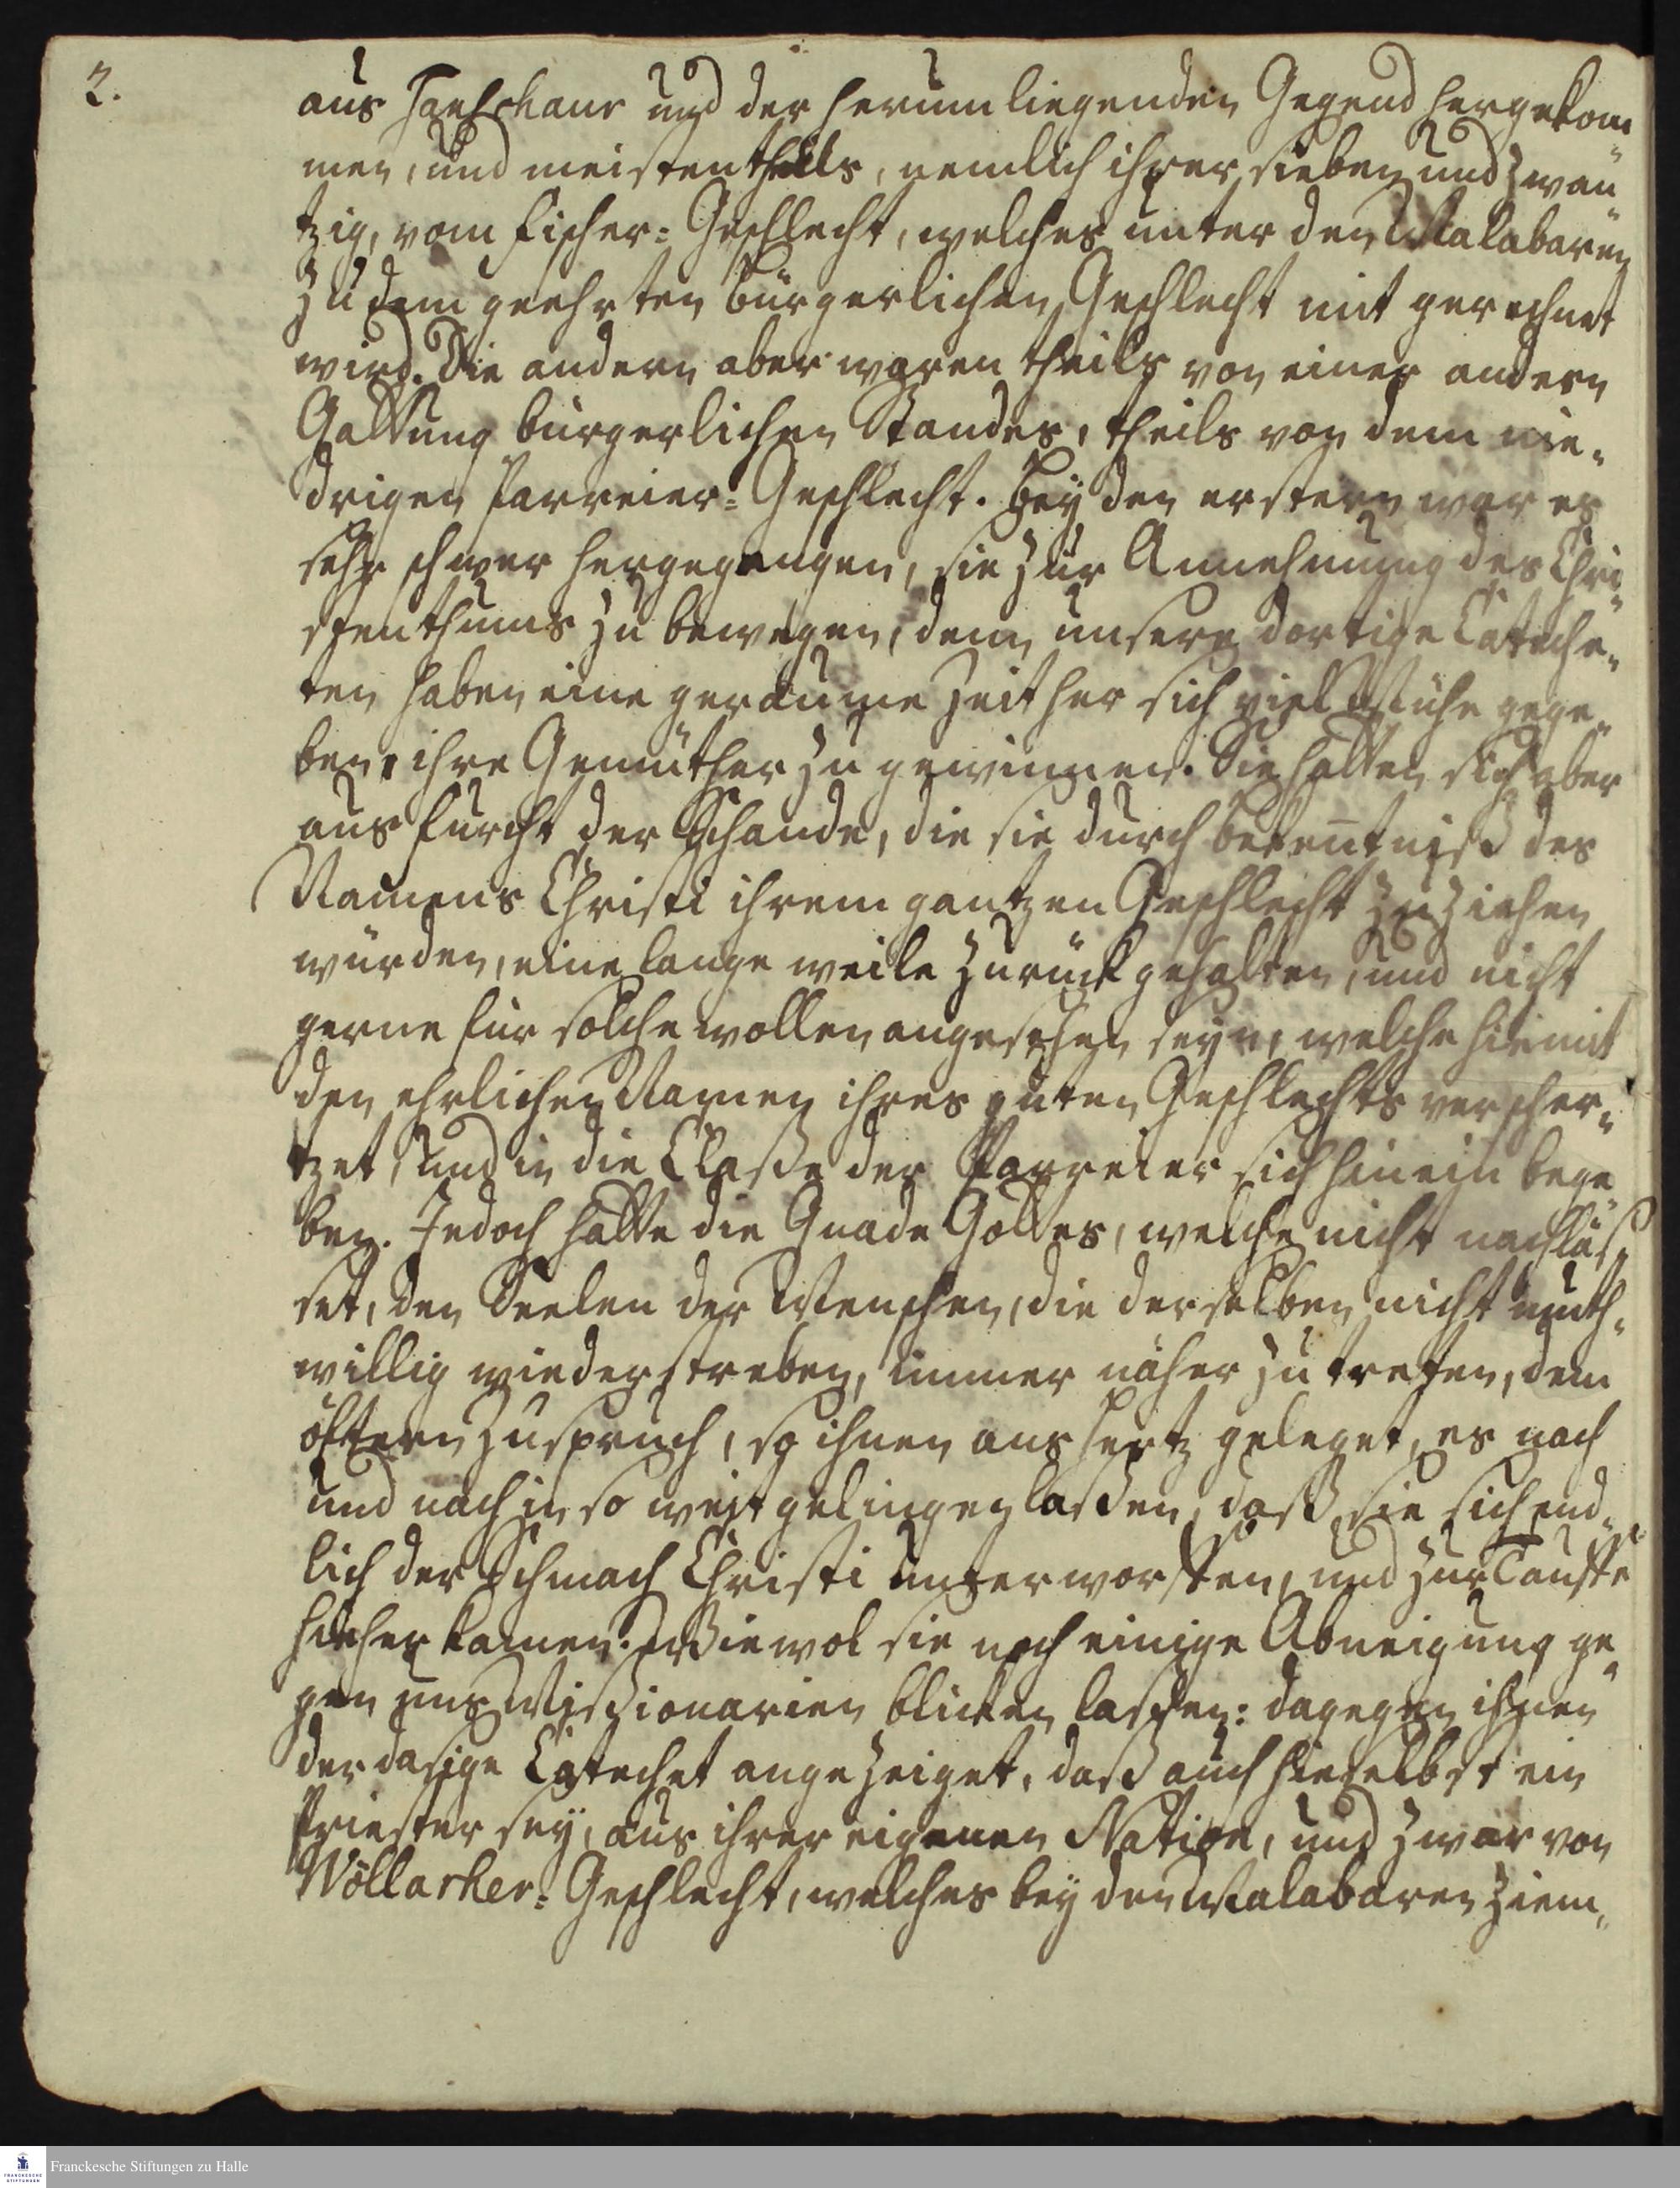 2.
aus Tanschaur und der herum liegenden Gegend hergekom„
men, und meistentheils, nemlich ihrer sieben und zwan„
tzig, vom Fischer=Geschlecht, welches unter den Malabaren
zu dem geehrten bürgerlichen Geschlecht mit gerechnet
wird. Die andern aber waren theils von einer andern
Gattung bürgerlichen Standes, theils von dem nie„
drigen Parreier=Geschlecht. Bey den erstern war es
sehr schwer hergegangen, sie zur Annehmung des Chri„
stenthums zu bewegen, denn unsere dortige Cateche„
ten haben eine geraume Zeit her sich viel Mühe gege„
ben, ihre Gemüther zu gewinnen. Sie hatten sich aber
aus Furcht der Schande, die sie durch Bekentniß des
Namens Christi ihrem gantzen Geschlecht zuziehen
würden, eine lange weile zurück gehalten, und nicht
gerne für solche wollen angesehen seyn, welche hiemit
den ehrlichen Namen ihres guten Geschlechts verscher„
tzet, und in die Classe der Parreier sich hinein bege„
ben. Jedoch hatte die Gnade Gottes, welche nicht nachläs„
set, den Seelen der Menschen, die derselben nicht muth„
willig wiederstreben, immer näher zu treten, dem
öftern Zuspruch, so ihnen ans Hertz geleget, es nach
und nach in so weit gelingen lassen, daß sie sich end„
lich der Schmach Christi unterworffen, und zur Tauffe
hieher kamen. Wiewol sie noch einige Abneigung ge„
gen uns Missionarien blicken lassen: dagegen ihnen
der dasige Catechet angezeiget, daß auch hieselbst ein
Priester sey, aus ihrer eigenen Nation, und zwar von
Wöllarher=Geschlecht, welches bey den Malabaren ziem„
Franckesche Stiftungen zu Halle